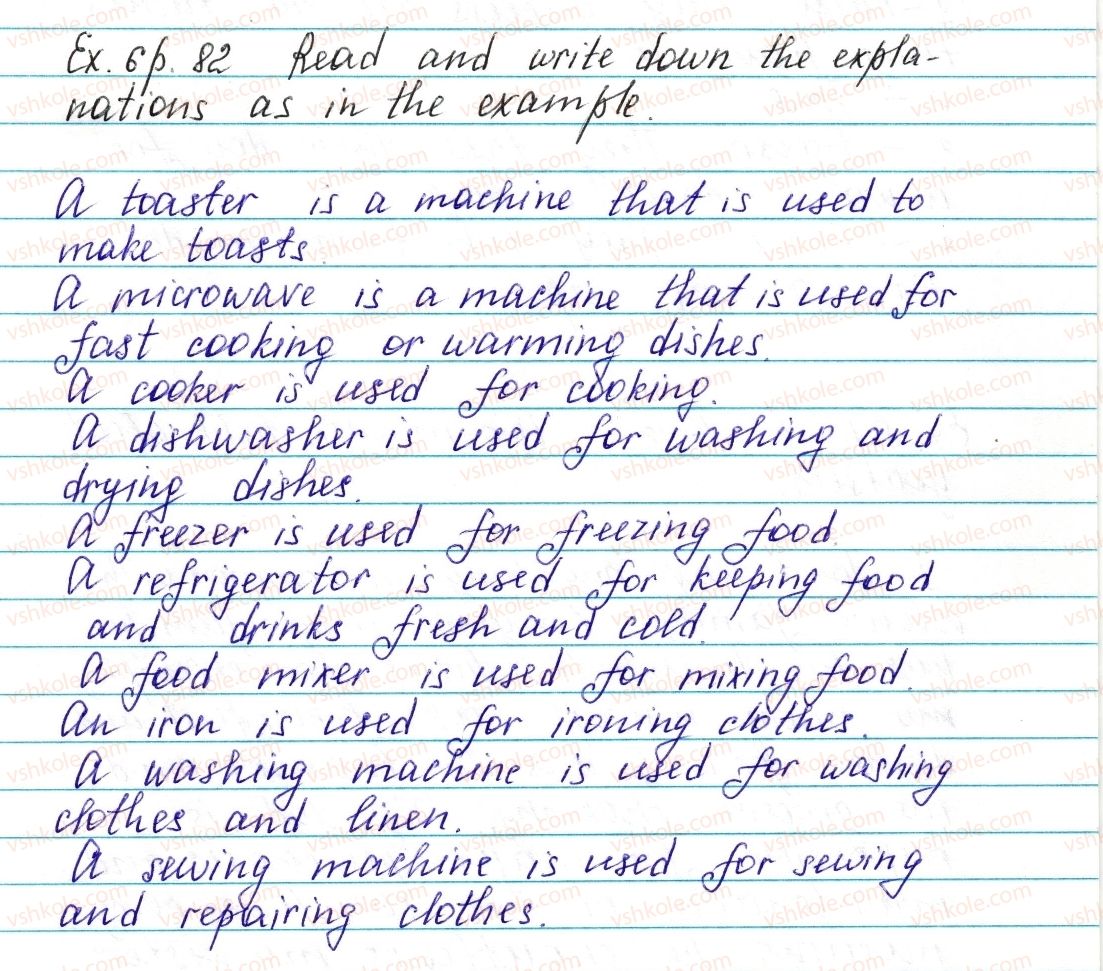 Ex. 6 p. 82 Read and write down the expla-
nations as in the example.
A toaster is a machine that is used to
make toasts.
A microwave is a machine that is used for
fast cooking or warming dishes.
A cooker is used for cooking.
A dishwasher is used for washing and
drying dishes.
A freezer is used for freezing food.
A refrigerator is used for keeping food
and drinks fresh and cold.
A food mixer is used for mixing food.
An iron is used for ironing clothes.
A washing machine is used for washing
clothes and linen.
A sewing machine is used for sewing
and repairing clothes.